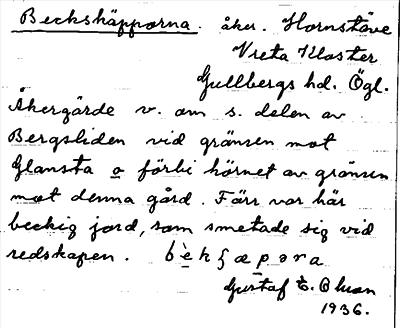 Beckshäpporna. åker. Hornstäve
Vreta Kloster
Gullbergs hd. Ögl.
Åkergärde v. om s. delen av
Bergsliden vid gränsen mot
Glansta o förbi hörnet av gränsen
mot denna gård. Färr var här
beckig jord, som smetade sig vid
redskapen.
Gustaf E.
1936.